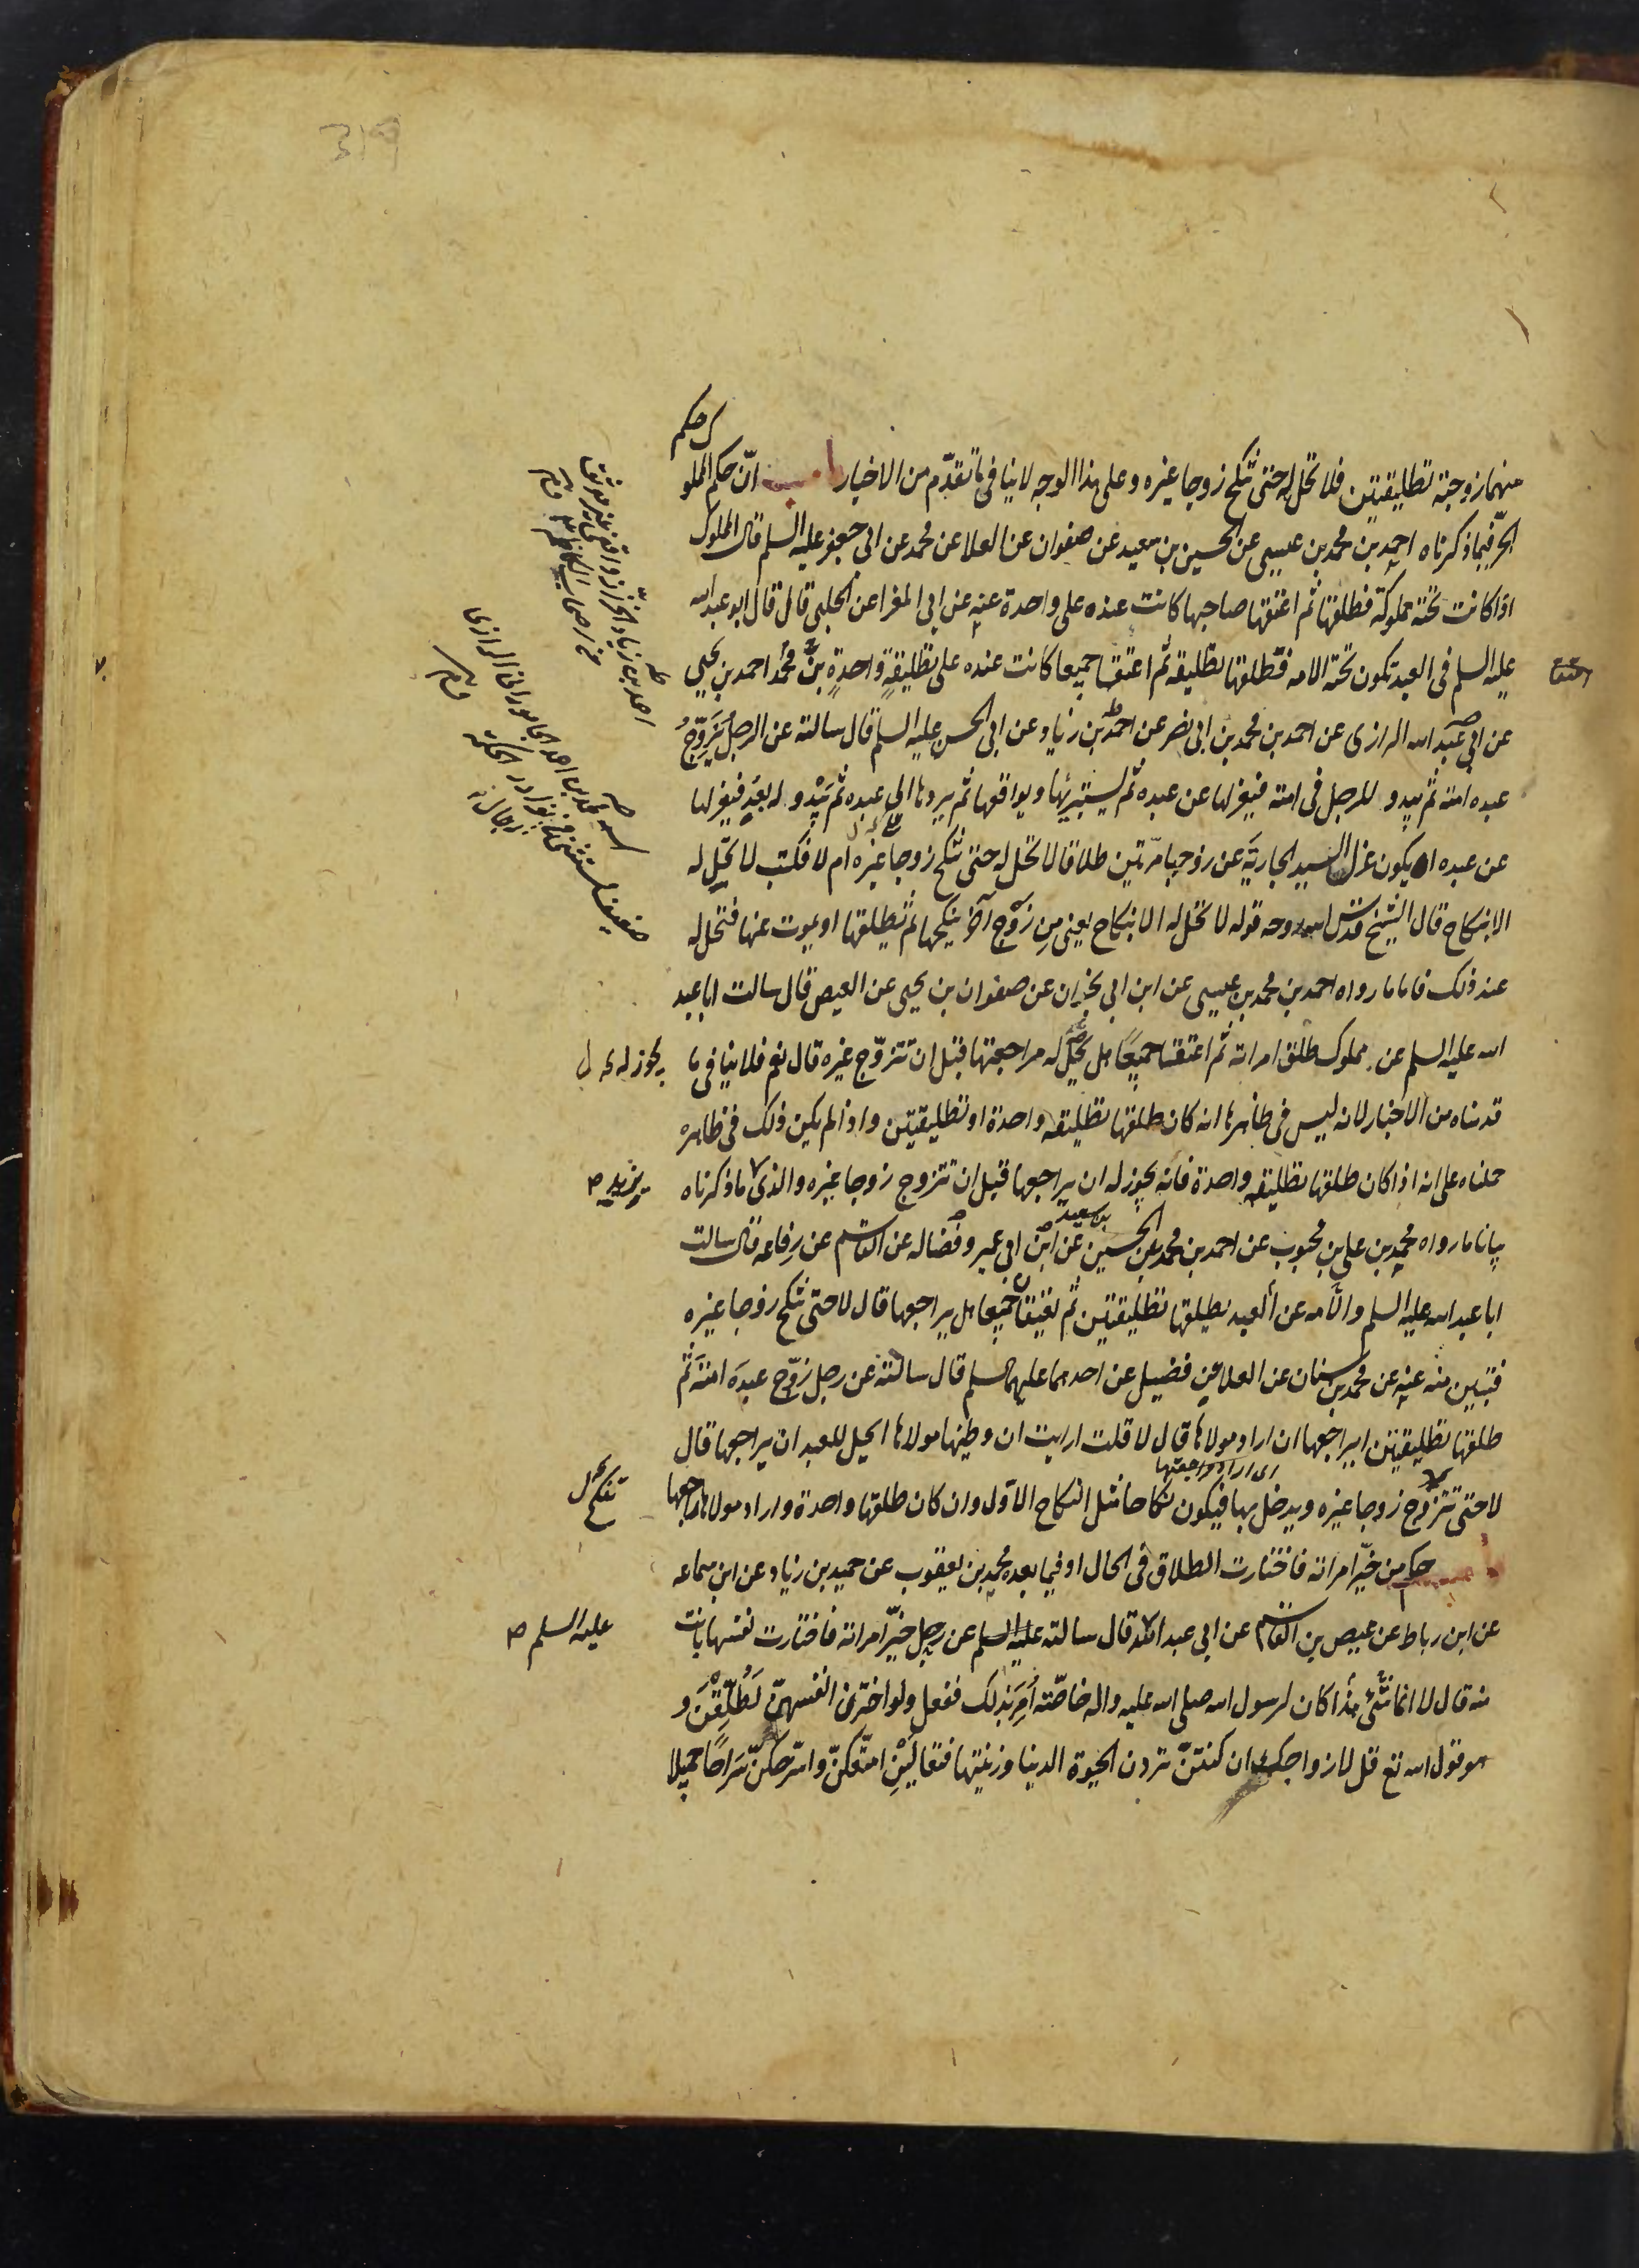 319
ل حكم
منهما زوجته تطليقتين فلا تحل له حتى تنكح زوجا غيره وعلى هذا الوجه لا ينافى ما تقدّم من الاخبار باب انّ حكم المملو
الحرّ فيما ذكرناه احمد بن محمد بن عيسى عن الحسين بن سعيد عن صفوان عن العلا عن محمد عن ابى جعفر عليه السلم قال المملوك
اذا كانت تحته مملوكة فطلقها ثم اعتقها صاحبها كانت عنده على واحدة عنه عن ابى المغرا عن الحلبى قال قال ابو عبد الله
عليه السلم فى العبد تكون تحته الامه فطلقها تطليقه ثم اعتقا جميعا كانت عنده على تطليقةٍ واحدةٍ محمد بن احمد بن يحيى
اعتقا
عن ابى عبد الله الرازى عن احمد بن محمد بن ابى نصر عن احمد بن زياد عن ابى الحسن عليه السلم قال سالته عن الرجل يُزَوِّجُ
عبده امته ثم يبدو للرجل فى امته فيعزلها عن عبده ثم يستبريها ويواقعها ثم يردها الى عبده ثم يَبْدو له بعد فيعزلها
عن عبده ايكون عزل السيد الجارية عن زوجها مرّتين طلاقا لا تحل له حتى تنكح زوجا غيره ام لا فكتب لا تحل له
الا بنكاح قال الشيخ قدس الله روحه قوله لا تحل له الا بنكاح يعنى مِن زوج آخر ينكحها ثم يطلقها او يموت عنها فتحل له
عند ذلك فاما ما رواه احمد بن محمد بن عيسى عن ابن ابى نجران عن صفوان بن يحيى عن العيص قال سالت ابا عبد
الله عليه السلم عن مملوك طلق امراته ثم اعتقتا جميعًا هل يحل له مراجعتها قبل ان تتزوّج غيره قال نعم فلا ينافى ما
يجوز له
قدمناه من الاخبار لانه ليس فى ظاهرها انه كان طلقها تطليقه واحدة او تطليقتين واذا لم يكن ذلك فى ظاهره
حملناه على انه اذا كان طلقها تطليقه واحدة فانه يجوز له ان يراجعها قبل ان تتزوج زوجا غيره والذى ما ذكرناه
يزيد ص
بيانا ما رواه محمد بن على بن محبوب عن احمد بن محمد عن الحسين بن سعيد عن ابن ابى عمير وفضاله عن القاسم عن رفاعه قال سالت
ابا عبد الله عليه السلم والامه عن العبد يطلقها تطليقتين ثم يعتقان جميعا هل يراجعها قال لا حتى تنكح زوجا غيره
فتبين منه عنه عن محمد بن سنان عن العلا عن فضيل عن احدهما عليهما السلم قال سالته عن رجل زوّج عبدَه امتَه ثم
طلقها تطليقتين ايراجعها ان اراد مولاها قال لا قلت ارايت ان وطيها مولاها ايحل للعبد ان يراجعها قال
اى اراد مراجعتها
لا حتى تتزوج زوجا غيره ويدخل بها فيكون نكاحا مثل النكاح الاول وان كان طلقها واحدة واراد مولاها راجعها
تنكح ل
باب حكم من خيّر امراته فاختارت الطلاق فى الحال او فيما بعده محمد بن يعقوب عن حميد بن زياد عن ابن سماعه
عن ابن رباط عن عيص بن القاسم عن ابى عبد الله قال سالته عليه السلم عن رجل خيّر امراته فاختارت نفسها بانت
عليه السلم ص
منه قال لا انما شئ هذا كان لرسول الله صلى الله عليه واله خاصّة اُمِرَ بذلك ففعل ولو اخترن انفسهنّ لَطُلِّقْنَ و
هو قول الله تع قل لازواجك ان كنتنّ تردن الحيوة الدنيا وزينتها فتعالَيْنَ امتّعكنّ واسرّحكنّ سَراحًا جميلا
احمد بن زياد الخزاز واقفى غير موثق
من اصحاب الكاظم
اسمه محمد بن احمد الجامورانى الرازى
ضعيف